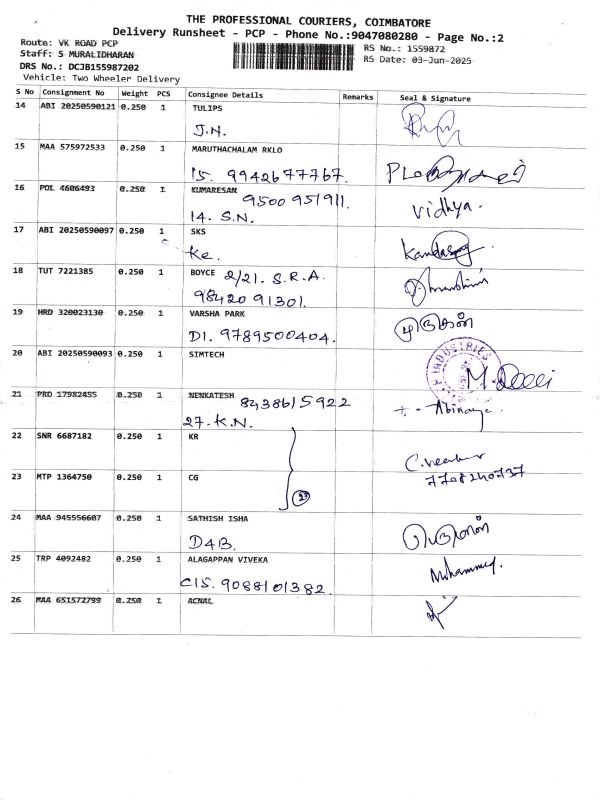 THE PROFESSIONAL COURIERS, COIMBATORE
Delivery Runsheet - PCP - Phone No.:9047080280 - Page No.:2
Route: VK ROAD PCP
RS No.: 1559872
Staff: S MURALIDHARAN
RS Date: 03-Jun-2025
DRS No.: DCJB155987202
Vehicle: Two Wheeler Delivery
S No Consignment No Weight PCS Consignee Details Remarks Seal & Signature
14 ABI 20250590121 0.250 1 TULIPS
J.N.
15 MAA 575972533 0.250 1 MARUTHACHALAM RKLO
15. 9942677767.
16 POL 4606493 0.250 1 KUMARESAN 9500951911.
14. S.N. vidhya.
17 ABI 20250590097 0.250 1 SKS
Ke. Kandasamy
18 TUT 7221385 0.250 1 BOYCE 2/21. S.R.A.
9842091301.
19 HRD 320023130 0.250 1 VARSHA PARK
D1. 9789500404. முருகன்
20 ABI 20250590093 0.250 1 SIMTECH
INDUSTRIES
M. Devi
21 PRD 17982455 0.250 1 NENKATESH 8438615922
27. K.N. Abinaya
22 SNR 6687182 0.250 1 KR
23 MTP 1364750 0.250 1 CG
7708240737
24 MAA 945556607 0.250 1 SATHISH ISHA
D4B.
25 TRP 4092482 0.250 1 ALAGAPPAN VIVEKA
C15. 9088101382. Mohammed.
26 MAA 651572799 0.250 1 ACNAL